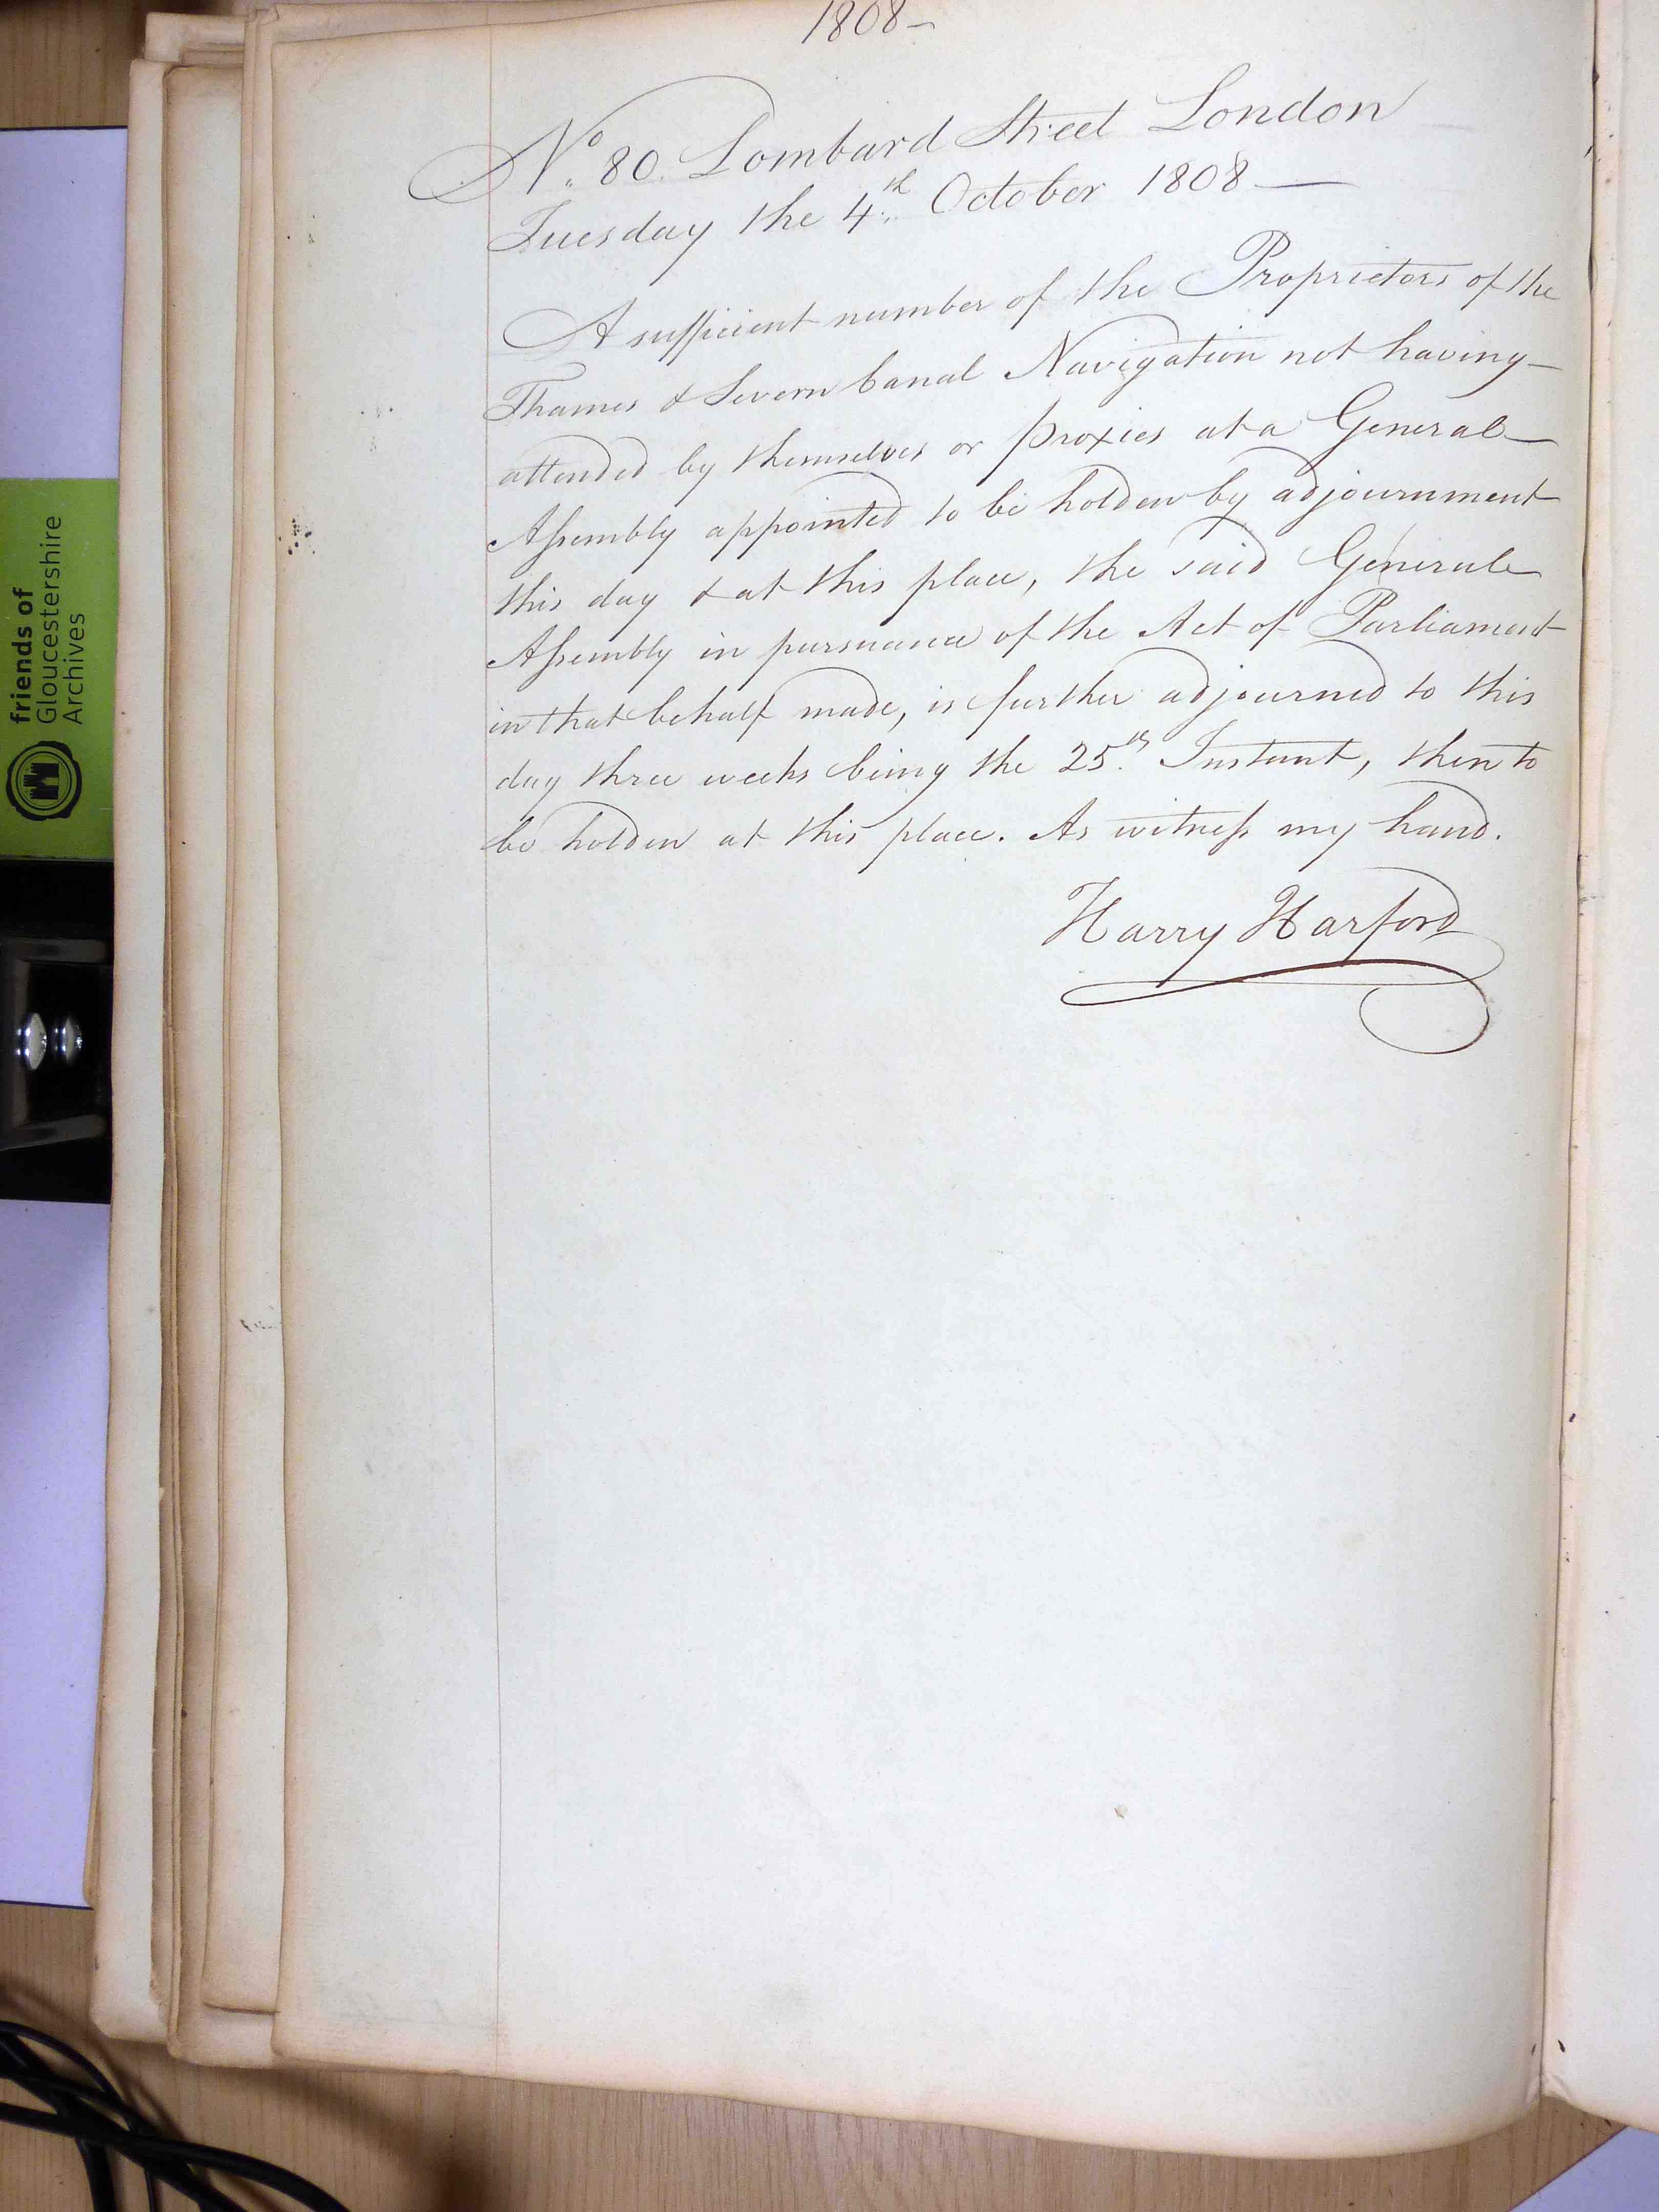 1808-
No. 80. Lombard Street London
Tuesday the 4th October 1808 —
A sufficient number of the Proprietors of the
Thames & Severn Canal Navigation not having —
attended by themselves or proxies at a General —
Assembly appointed to be holden by adjournment
this day & at this place, the said General
Assembly in pursuance of the Act of Parliament
in that behalf made, is further adjourned to this
day three weeks being the 25th. Instant, then to
be holden at this place. As witness my hand.
Harry Harford
friends of
Gloucestershire
Archives